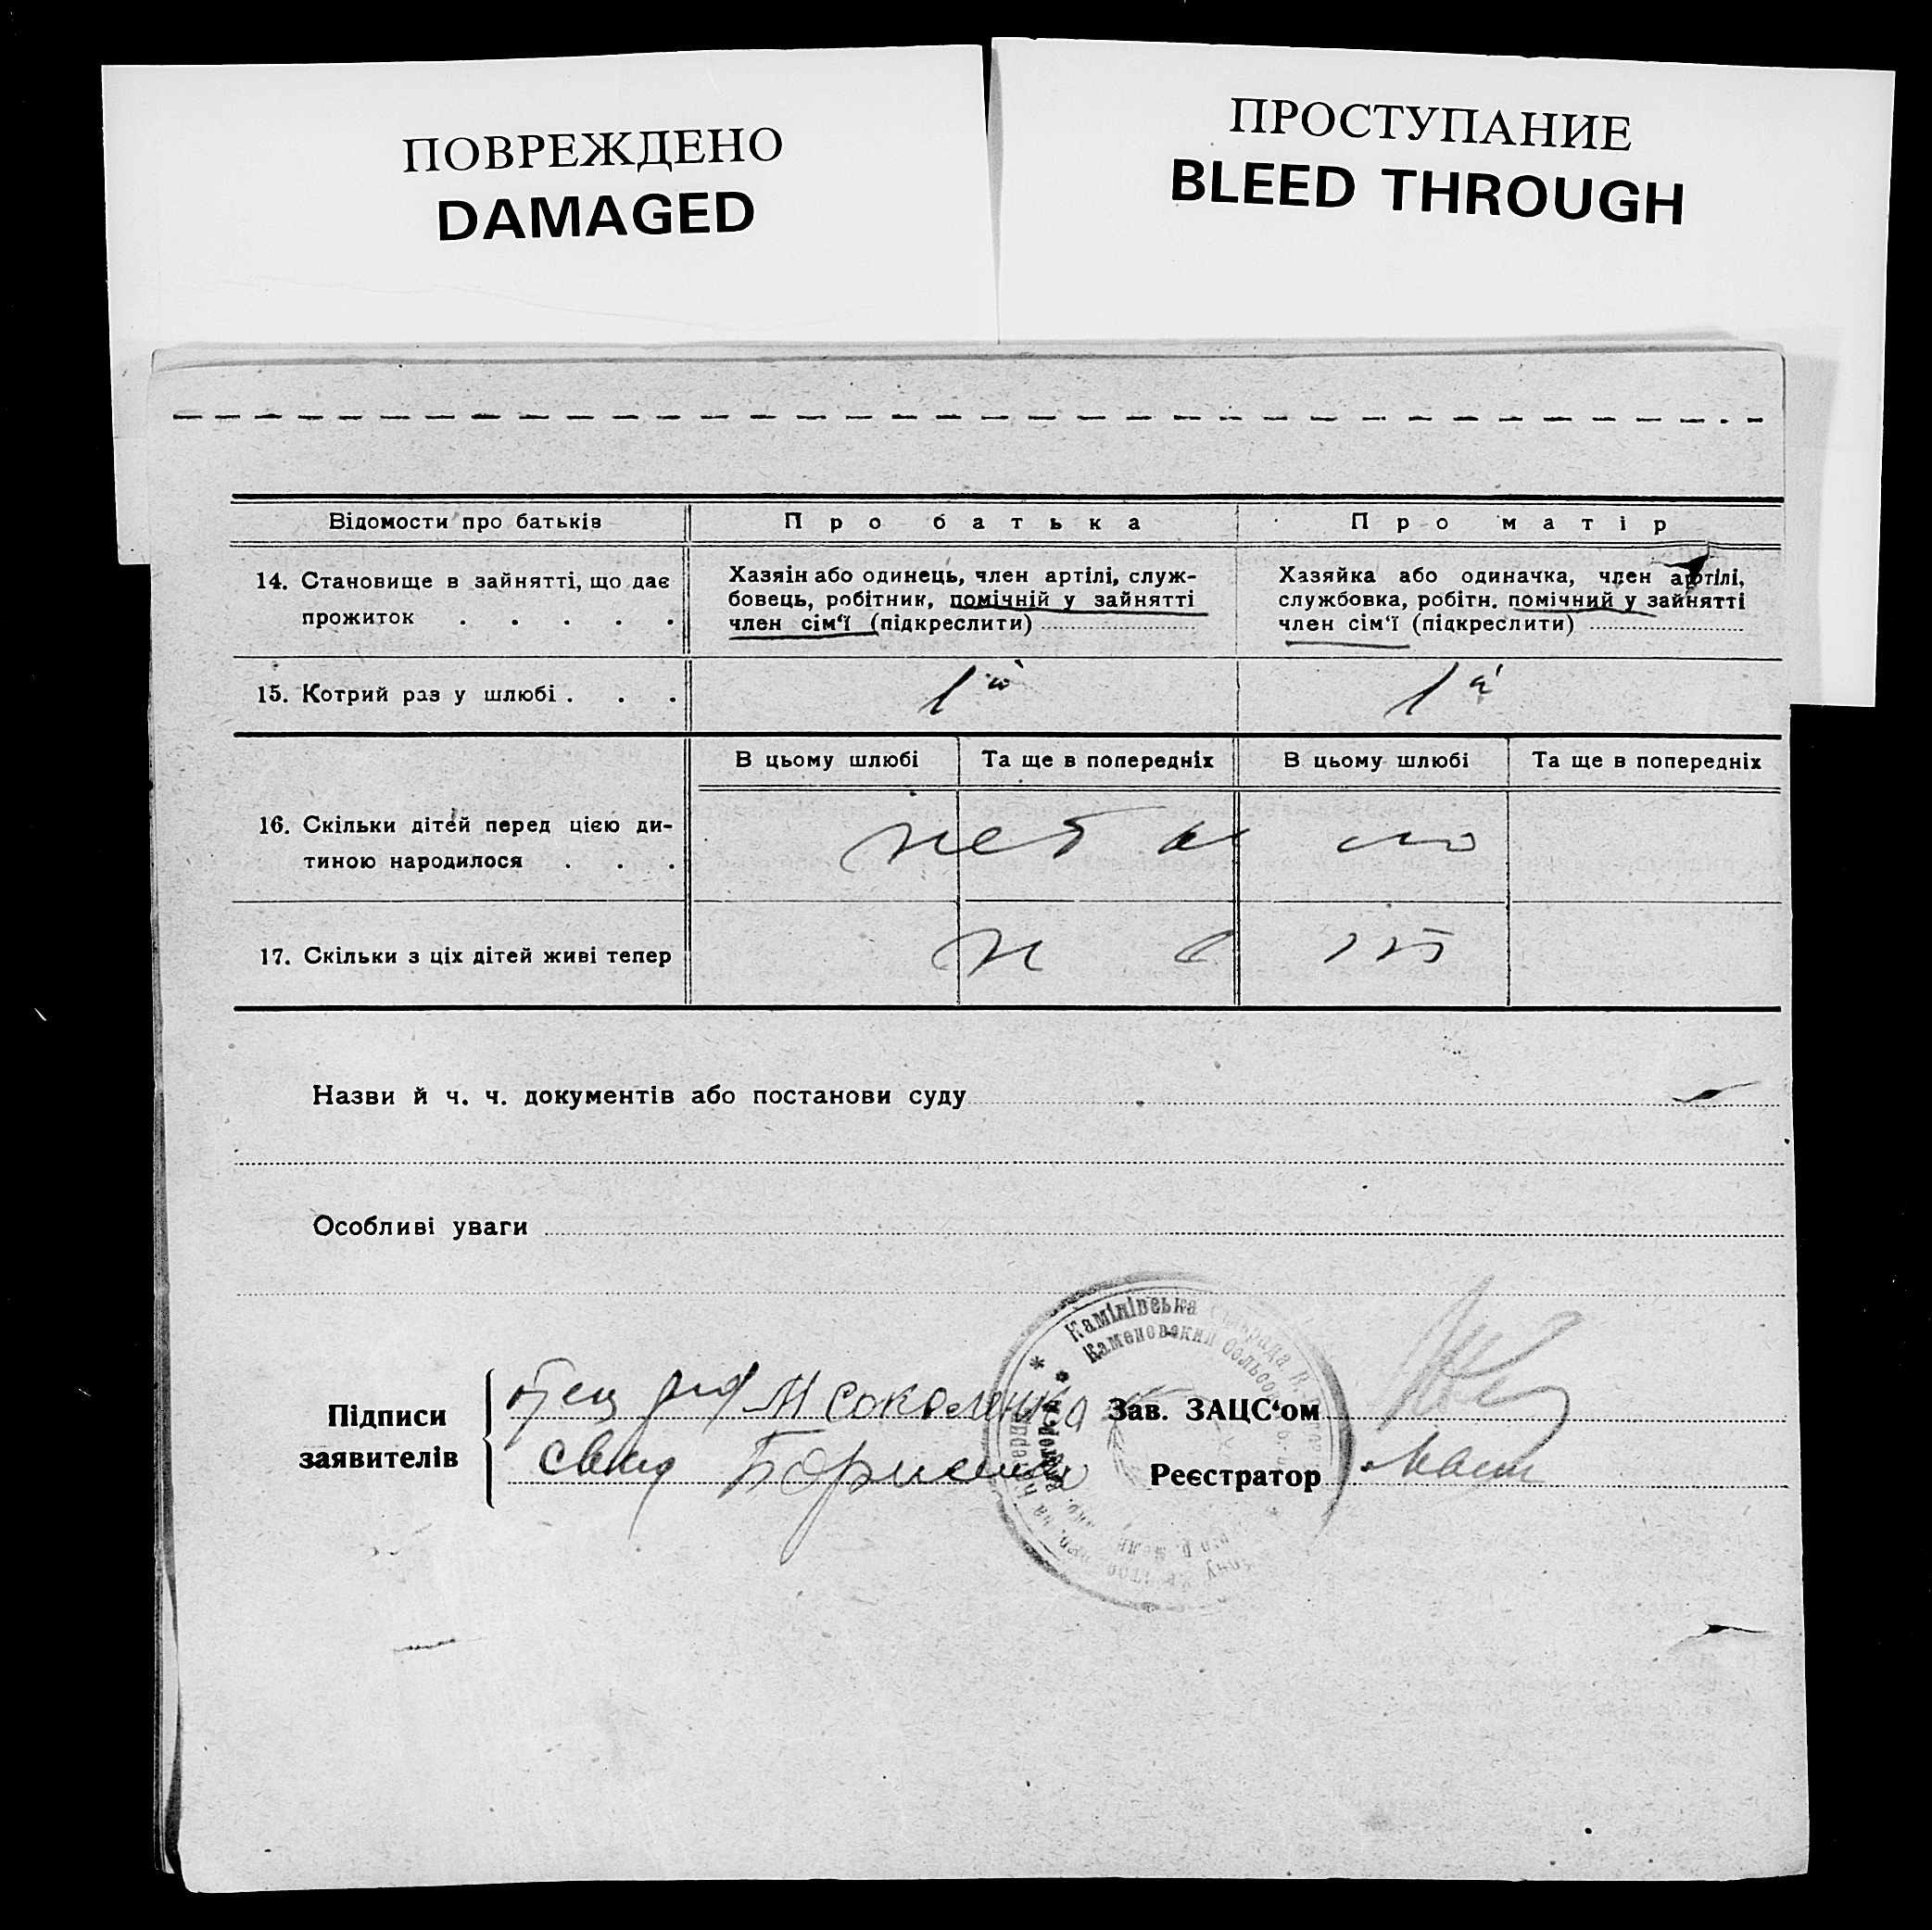 ПОВРЕЖДЕНО
DAMAGED
ПРОСТУПАНИЕ
BLEED THROUGH
Відомости про батьків
Про батька
Про матір
14. Становище в зайнятті, що дає
прожиток . . . . .
Хазяін або одинець, член артілі, служ-
бовець, робітник, помічній у зайнятті
член сім'ї (підкреслити)
Хазяйка або одиначка, член артілі,
службовка, робітн. помічний у зайнятті
член сім'ї (підкреслити)
15. Котрий раз у шлюбі . . .
1й
1й
В цьому шлюбі
Та ще в попередніх
В цьому шлюбі
Та ще в попередніх
16. Скільки дітей перед цією ди-
тиною народилося . . .
небило
17. Скільки з ціх дітей живі тепер
Назви й ч. ч. документів або постанови суду
Особливі уваги
Підписи
заявителів
М соколенко
свид
Зав. ЗАЦС'ом
Реєстратор
Камінівська
Каменовский